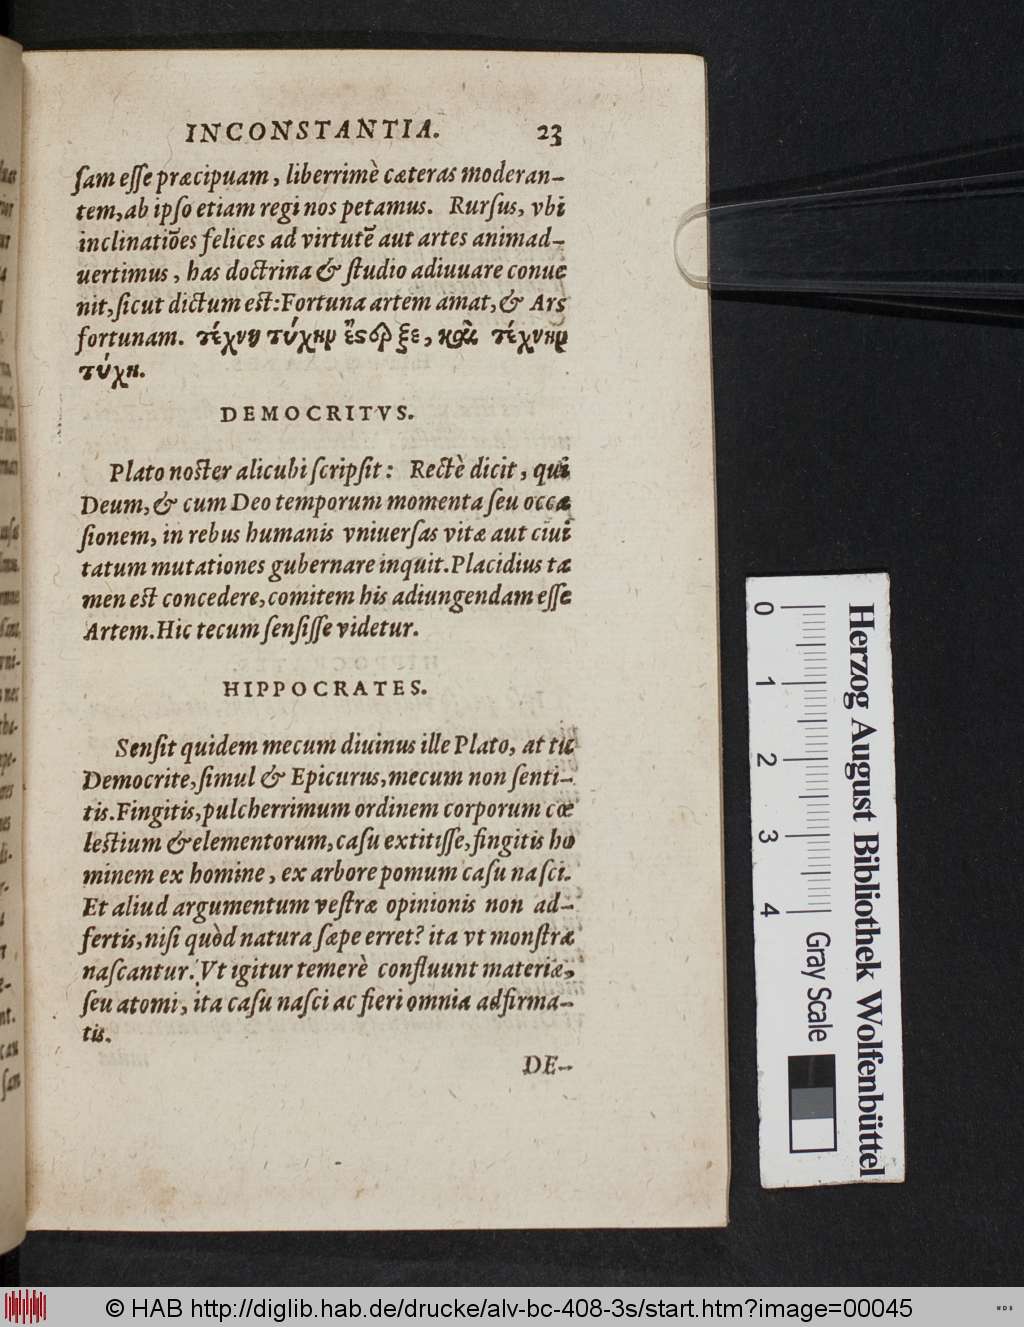 INCONSTANTIA. 23
ſam eſſe præcipuam, liberrimè cæteras moderan-
tem, ab ipſo etiam regi nos petamus. Rurſus, vbi
inclinatiões felices ad virtutẽ aut artes animad-
uertimus, has doctrina & ſtudio adiuuare conue
nit, ſicut dictum eſt: Fortuna artem amat, & Ars
fortunam. τέχνη τύχην ἔϛορξε, καὶ τέχνην
τύχη.
DEMOCRITVS.
Plato noſter alicubi ſcripſit: Rectè dicit, qui
Deum, & cum Deo temporum momenta ſeu occa
ſionem, in rebus humanis vniuerſas vitæ aut ciui
tatum mutationes gubernare inquit. Placidius ta
men eſt concedere, comitem his adiungendam eſſe
Artem. Hic tecum ſenſiſſe videtur.
HIPPOCRATES.
Senſit quidem mecum diuinus ille Plato, at tu
Democrite, ſimul & Epicurus, mecum non ſenti-
tis. Fingitis, pulcherrimum ordinem corporum cœ
leſtium & elementorum, caſu extitiſſe, fingitis ho
minem ex homine, ex arbore pomum caſu naſci.
Et aliud argumentum veſtræ opinionis non ad-
fertis, niſi quòd natura ſæpe erret? ita vt monſtra
naſcantur. Vt igitur temerè confluunt materiæ,
ſeu atomi, ita caſu naſci ac fieri omnia adfirma-
tis.
DE-
0 1 2 3 4
Gray Scale
Herzog August Bibliothek Wolfenbüttel
© HAB http://diglib.hab.de/drucke/alv-bc-408-3s/start.htm?image=00045